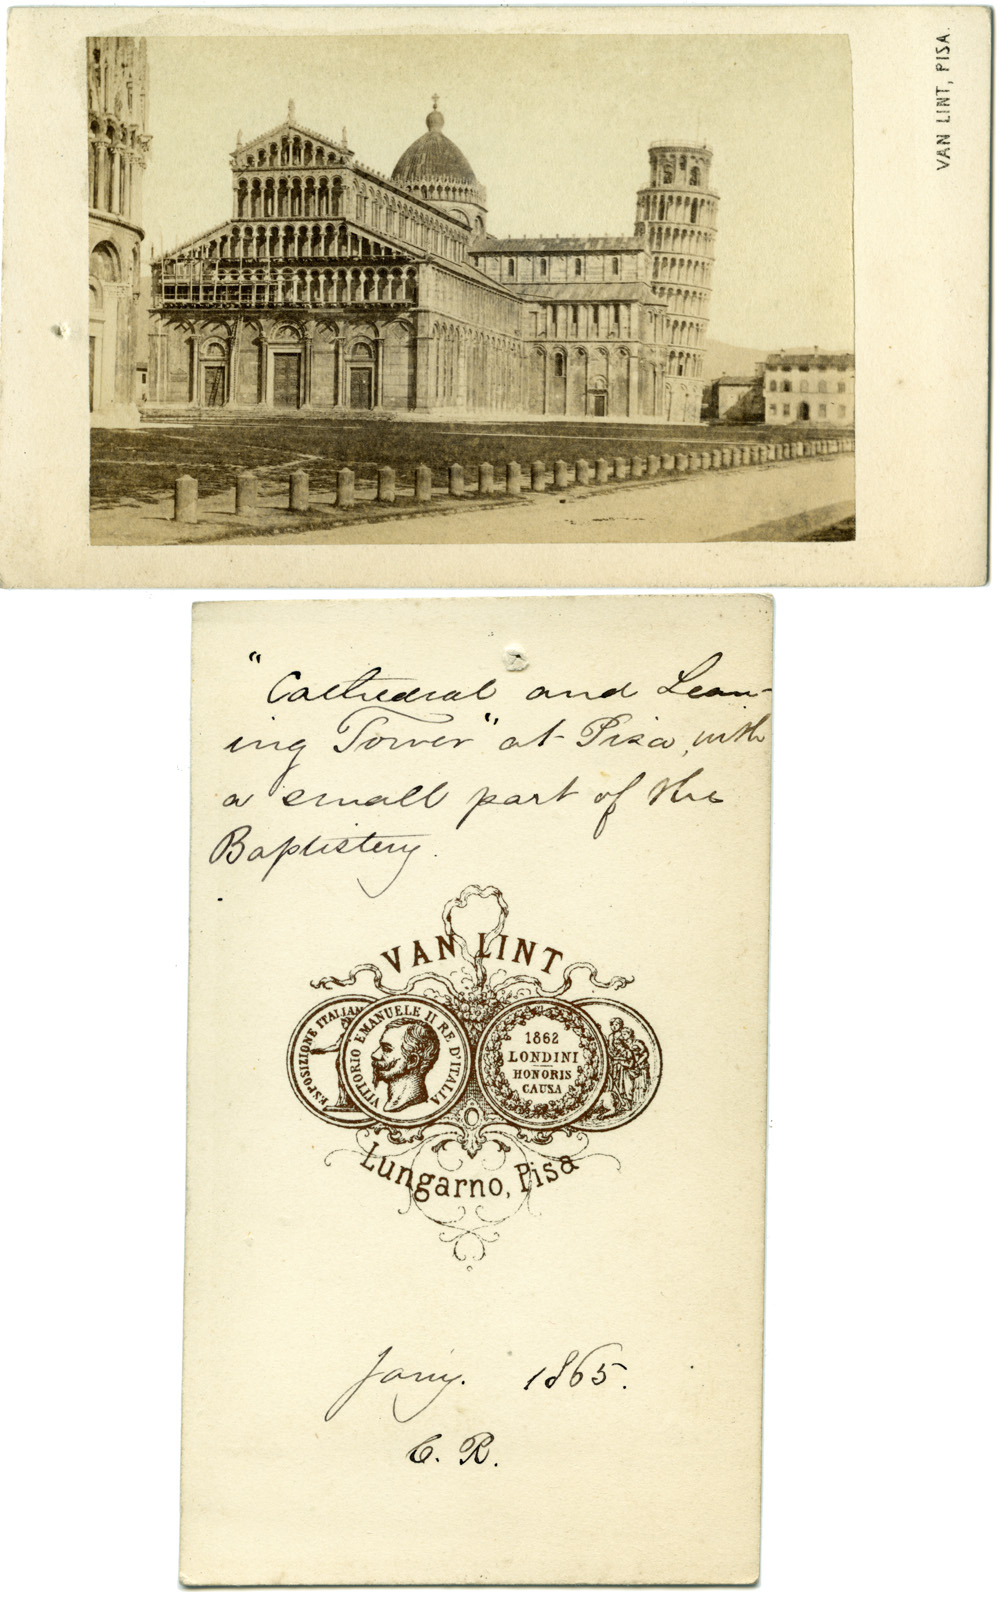 VAN LINT, PISA.
"Cathedral and Lean-
ing Tower" at Pisa, with
a small part of the
Baptistery.
VAN LINT
ESPOSIZIONE ITALIANA
VITTORIO EMANUELE II RE D'ITALIA
1862
LONDINI
HONORIS
CAUSA
Lungarno, Pisa
Jany. 1865.
C. R.